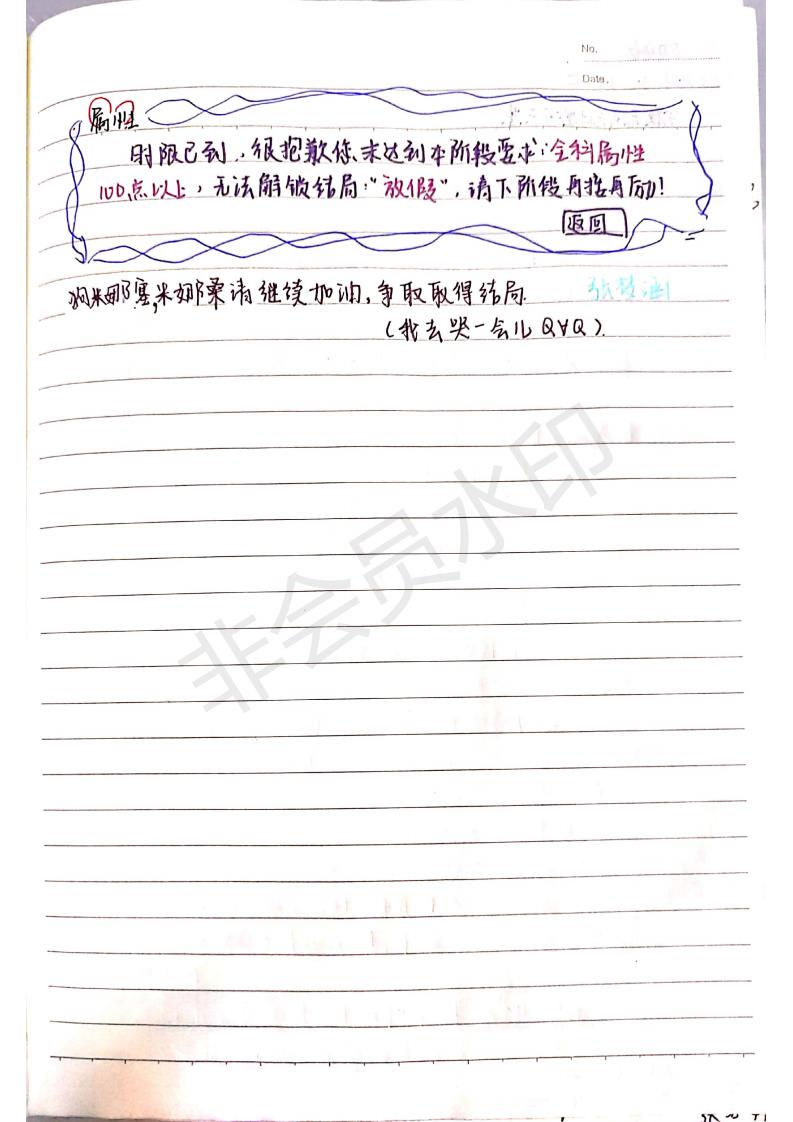 No.
Date.
属性
时限已到，很抱歉你未达到本阶段要求：全科属性
100点以上，无法解锁结局：“放假”，请下阶段再接再励！
返回
狗米娜塞，米娜桑请继续加油，争取取得结局
（我去哭一会儿QVQ）.
非会员水印